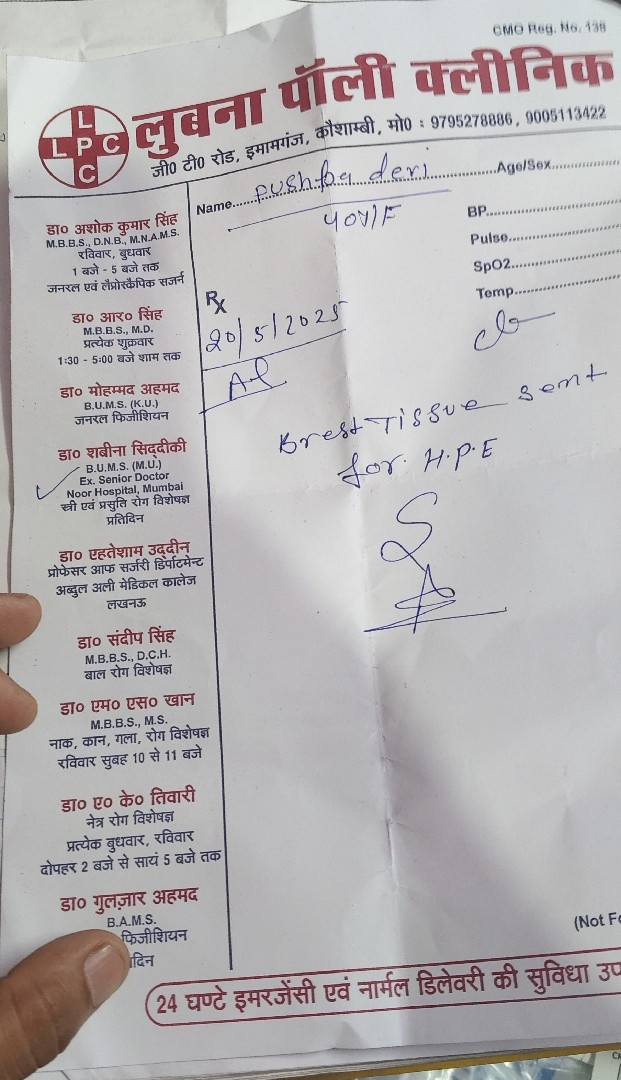 CMO Reg. No. 138
L
L P C
C
लुबना पॉली क्लीनिक
जी0 टी0 रोड, इमामगंज, कौशाम्बी, मो0 : 9795278886, 9005113422
Name......pushpa devi......Age/Sex......
40Y/F
BP......
Pulse......
SpO2......
Temp......
डा० अशोक कुमार सिंह
M.B.B.S., D.N.B., M.N.A.M.S.
रविवार, बुधवार
1 बजे - 5 बजे तक
जनरल एवं लैप्रोस्कैपिक सर्जन
डा० आर० सिंह
M.B.B.S., M.D.
प्रत्येक शुक्रवार
1:30 - 5:00 बजे शाम तक
डा० मोहम्मद अहमद
B.U.M.S. (K.U.)
जनरल फिजीशियन
डा० शबीना सिद्दीकी
B.U.M.S. (M.U.)
Ex. Senior Doctor
Noor Hospital, Mumbai
स्त्री एवं प्रसुति रोग विशेषज्ञ
प्रतिदिन
डा० एहतेशाम उद्दीन
प्रोफेसर आफ सर्जरी डिर्पाटमेन्ट
अब्दुल अली मेडिकल कालेज
लखनऊ
डा० संदीप सिंह
M.B.B.S., D.C.H.
बाल रोग विशेषज्ञ
डा० एम० एस० खान
M.B.B.S., M.S.
नाक, कान, गला, रोग विशेषज्ञ
रविवार सुबह 10 से 11 बजे
डा० ए० के० तिवारी
नेत्र रोग विशेषज्ञ
प्रत्येक बुधवार, रविवार
दोपहर 2 बजे से सायं 5 बजे तक
डा० गुलज़ार अहमद
B.A.M.S.
फिजीशियन
दिन
Rx
20/5/2025
c/o
Brest Tissue sent
for H.P.E
(Not Fo
24 घण्टे इमरजेंसी एवं नार्मल डिलेवरी की सुविधा उप